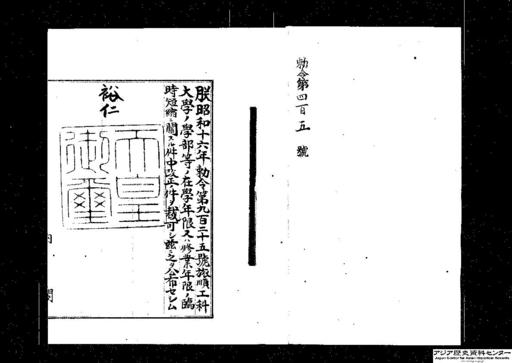 勅令第四百五號
朕昭和十六年勅令第九百二十五號旅順工科
大學ノ學部等ノ在學年限又ハ修業年限ノ臨
時短縮ニ關スル件中改正ノ件ヲ裁可シ茲ニ之ヲ公布セシム
裕仁
天皇
御璽
内閣
アジア歴史資料センター
Japan Center for Asian Historical Records